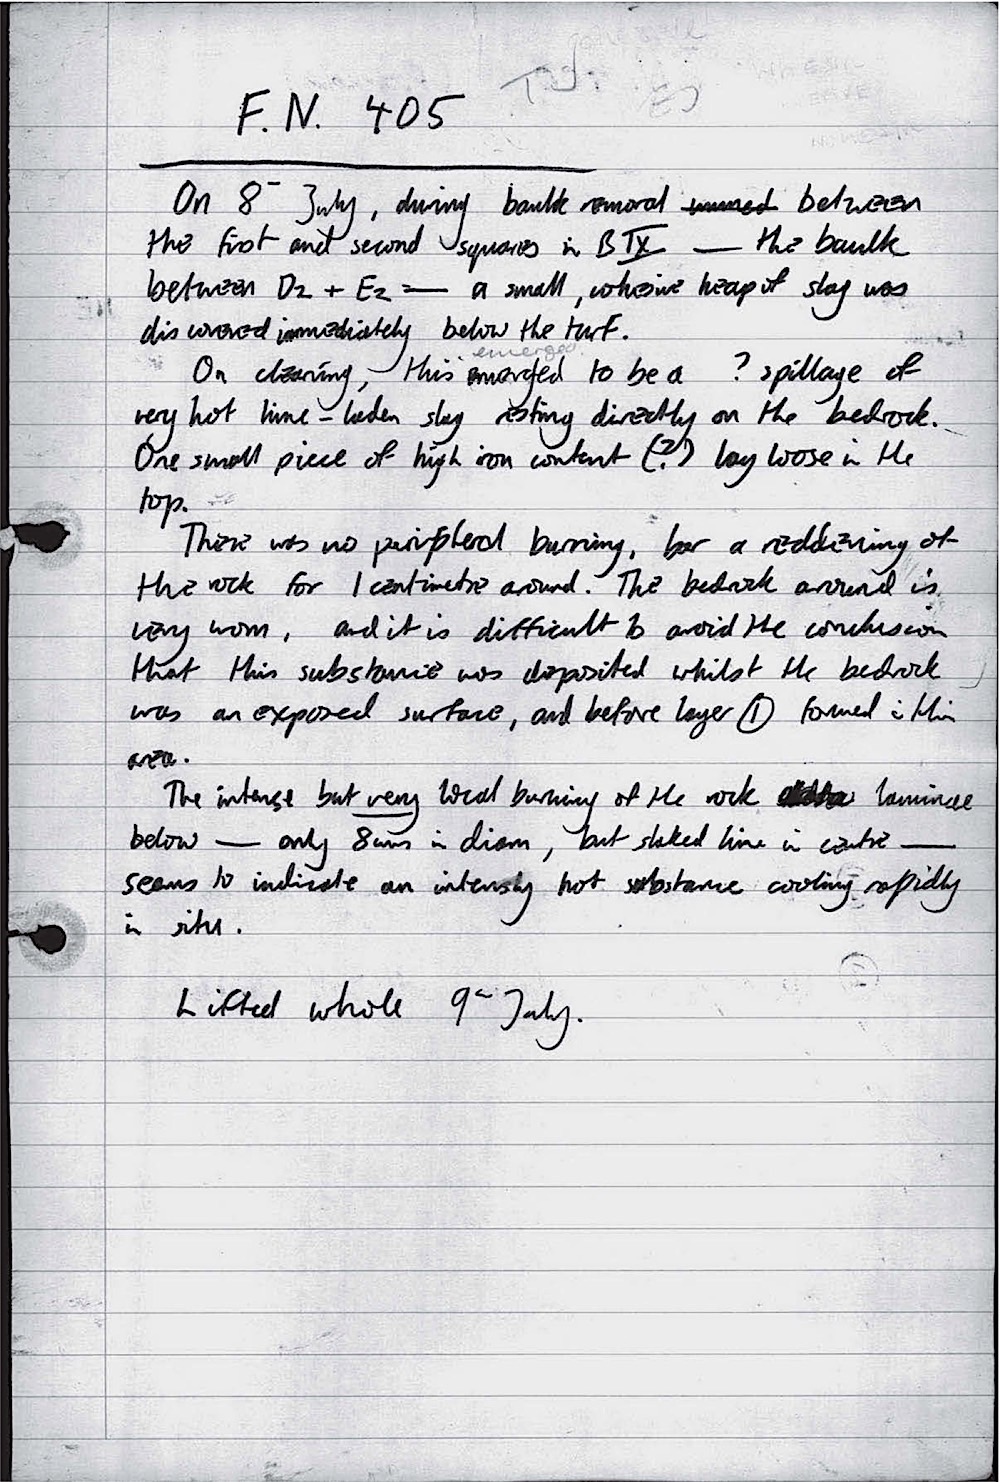 F.N. 405
On 8th July, during baulk removal between
the first and second squares in B IX — the baulk
between D2 + E2 — a small, cohesive heap of slag was
discovered immediately below the turf.
emerged
On cleaning, this emerged to be a ? spillage of
very hot lime-laden slag resting directly on the bedrock.
One small piece of high iron content (?) lay loose in the
top.
There was no peripheral burning, bar a reddening of
the rock for 1 centimetre around. The bedrock around is
very worn, and it is difficult to avoid the conclusion
that this substance was deposited whilst the bedrock
was an exposed surface, and before layer ① formed in this
area.
The intense but very local burning of the rock laminae
below — only 8cms in diam, but slaked lime in centre —
seems to indicate an intensely hot substance cooling rapidly
in situ.
Lifted whole 9th July.